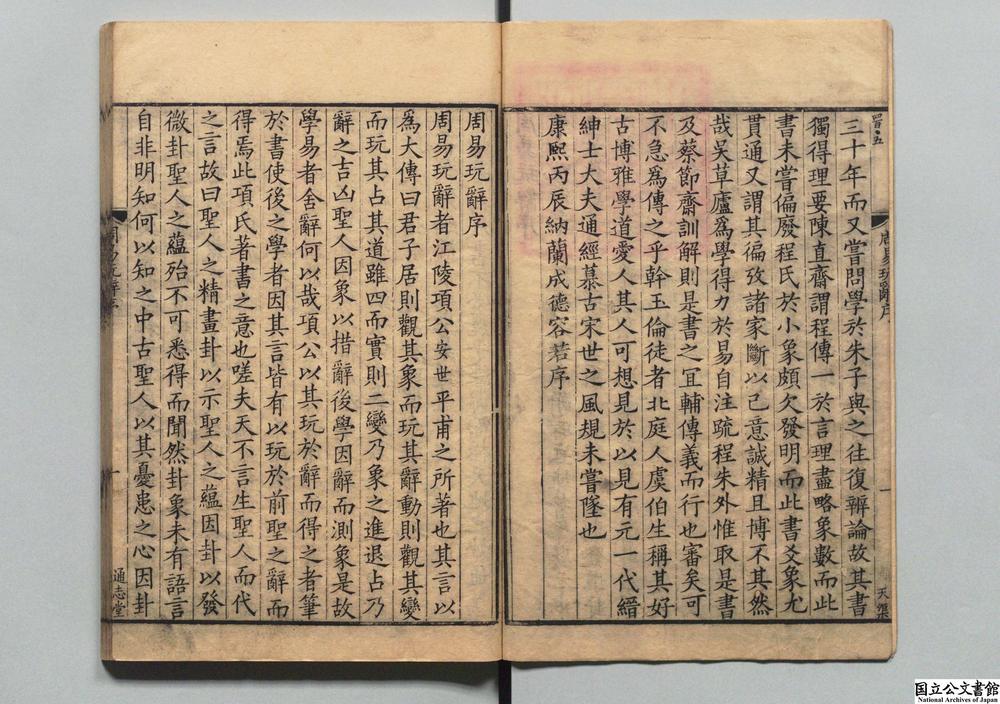 三十年而又嘗問學於朱子與之往復辨論故其書
獨得理要陳直齋謂程傳一於言理盡略象數而此
書未嘗偏廢程氏於小象頗欠發明而此書爻象尤
貫通又謂其徧攷諸家斷以己意誠精且博不其然
哉吴草廬爲學得力於易自注疏程朱外惟取是書
及蔡節齋訓解則是書之冝輔傳義而行也審矣可
不急爲傳之乎幹玉倫徒者北庭人虞伯生稱其好
古博雅學道愛人其人可想見於以見有元一代縉
紳士大夫通經慕古宋世之風規未嘗墜也
康熙丙辰納蘭成德容若序
周易玩辭序
一
天渠
周易玩辭序
周易玩辭者江陵項公安世平甫之所著也其言以
爲大傳曰君子居則觀其象而玩其辭動則觀其變
而玩其占其道雖四而實則二變乃象之進退占乃
辭之吉凶聖人因象以措辭後學因辭而測象是故
學易者舍辭何以哉項公以其玩於辭而得之者筆
於書使後之學者因其言皆有以玩於前聖之辭而
得焉此項氏著書之意也嗟夫天不言生聖人而代
之言故曰聖人之精畫卦以示聖人之蘊因卦以發
微卦聖人之蘊殆不可悉得而聞然卦象未有語言
自非明知何以知之中古聖人以其憂患之心因卦
一
通志堂
国立公文書館
National Archives of Japan